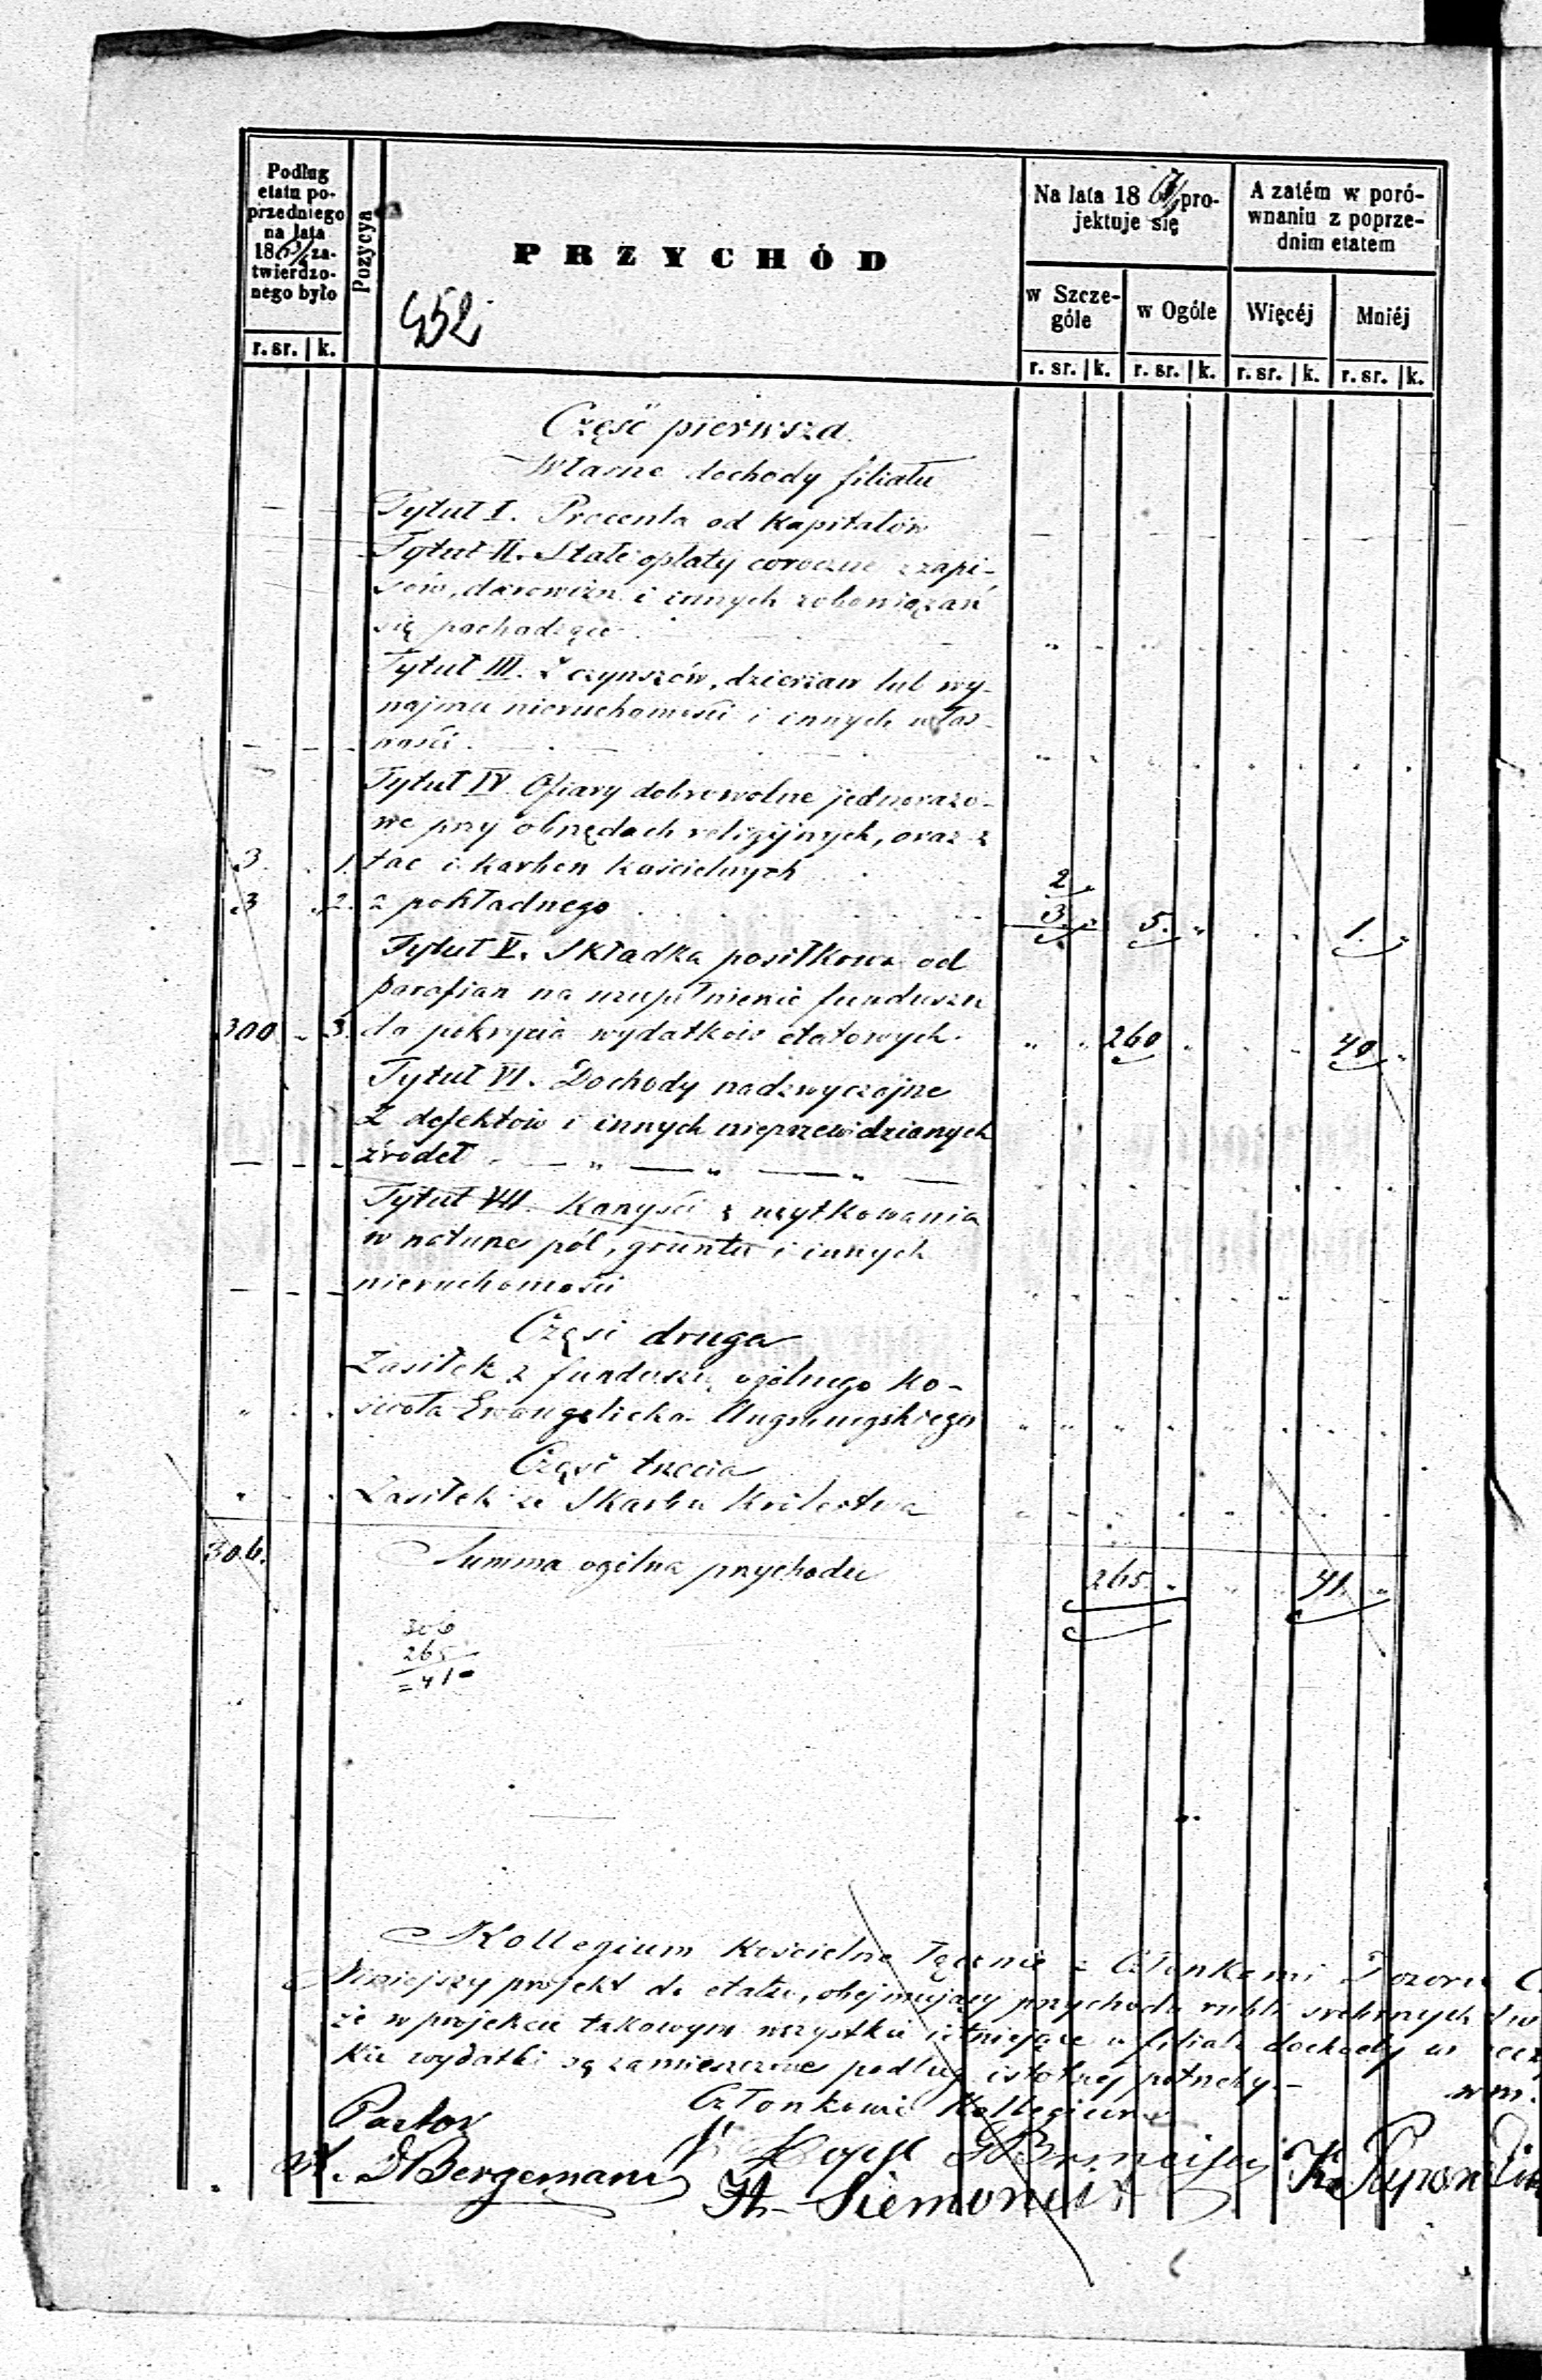 Podług
etatu po-
przedniego
na lata
186 za-
twierdzo-
nego było
r. sr. k.
Pozycya
PRZYCHÓD
452
Na lata 18 pro-
jektuje się
w Szcze-
góle
w Ogóle
r. sr. k. r. sr. k.
A zatém w poró-
wnaniu z poprze-
dnim etatem
Więcéj Mniéj
r. sr. k. r. sr. k.
Część pierwsza.
Własne dochody filiału
Tytuł I. Procenta od kapitałów
Tytuł II. Stałe opłaty coroczne z zapi-
sów, darowizn i innych zobowiązań
się pochodzące
Tytuł III. Z czynszów, dzierżaw lub wy-
najmu nieruchomości i innych włas-
ności.
Tytuł IV. Ofiary dobrowolne jednorazo-
we przy obrzędach religijnych, oraz z
3. 1. tac i karbon kościelnych 2
3 2. z pokładnego 3. 5. 1.
Tytuł V. Składka posiłkowa od
parafian na uzupełnienie funduszu
300 3. do pokrycia wydatków etatowych. 260 40
Tytuł VI. Dochody nadzwyczajne
z defektów i innych nieprzewidzianych
źródeł
Tytuł VII. Korzyści z użytkowania
w naturze pól, gruntu i innych
nieruchomości
Część druga
Zasiłek z funduszu ogólnego Ko-
ścioła Ewangelicko-Augsburgskiego
Część trzecia
Zasiłek ze Skarbu Królestwa
306. Summa ogólna przychodu 265. 41.
306
265
= 41
Kollegium kościelne łącznie z Członkami Dozoru
Niniejszy projekt do etatu, obejmujący przychodu rubli srebrnych
że w projekcie takowym wszystkie istniejące w filiale dochody
kie wydatki są zamieszczone podług istotnej potrzeby.-
Członkowie Kollegium
Pastor
Bergemann
Siemonis